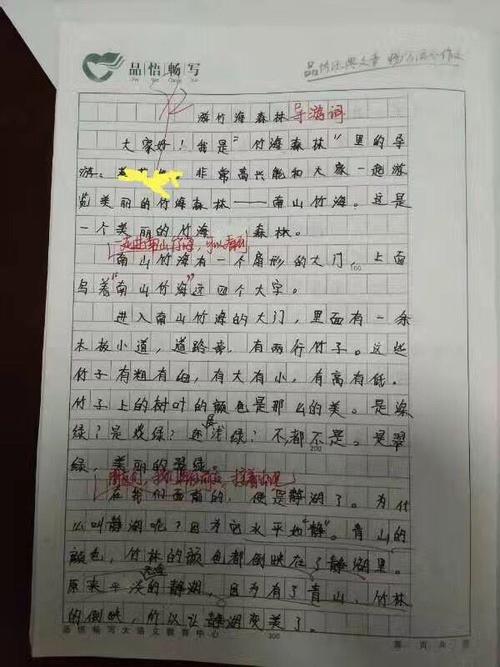 品悟畅写
游竹海森林导游词
大家好！我是“竹海森林”里的导
游。非常高兴能和大家一起游
览美丽的竹海森林——南山竹海。这是
一个美丽的竹海森林。
走进南山竹海，可以看到
南山竹海有一个扇形的大门，上面
写着“南山竹海”这四个大字。
进入南山竹海的大门，里面有一条
木板小道，道路旁，有两行竹子。这些
竹子有粗有白，有大有小，有高有低。
竹子上的树叶的颜色是那么的美。是深
绿？是浅绿？还是浅绿？不，都不是。是翠
绿，美丽的翠绿
在我们西南的，便是静湖了。为什
么叫静湖呢？因为它水平如“静”。青山的
颜色，竹林的颜色都倒映在了静湖里。
原来平淡的静湖，因为有了青山，竹林
的倒映，所以让静湖变美了。
品悟畅写大语文教育中心
100
200
300
第 页 共 页